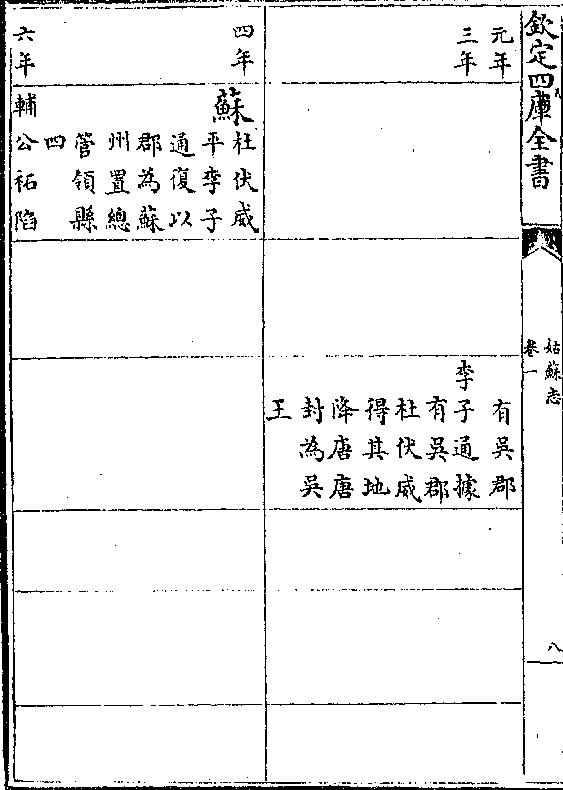 欽定四庫全書
姑蘇志
卷一
八
元年
有吳郡
三年
李子通據
有吳郡
杜伏威
得其地
降唐唐
封為吳
王
四年
蘇
杜伏威
平李子
通復以
郡為蘇
州置總
管領縣
四
六年
輔公祏陷